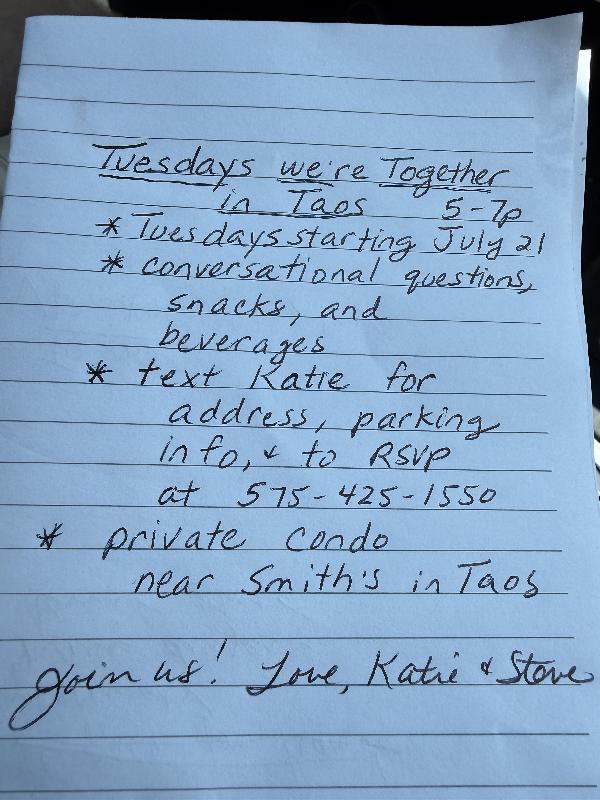 Tuesdays we're Together
in Taos 5-7p
* Tuesdays starting July 21
* conversational questions,
snacks, and
beverages
* text Katie for
address, parking
info, & to RSVP
at 575-425-1550
* private condo
near Smith's in Taos
Join us! Love, Katie & Steve